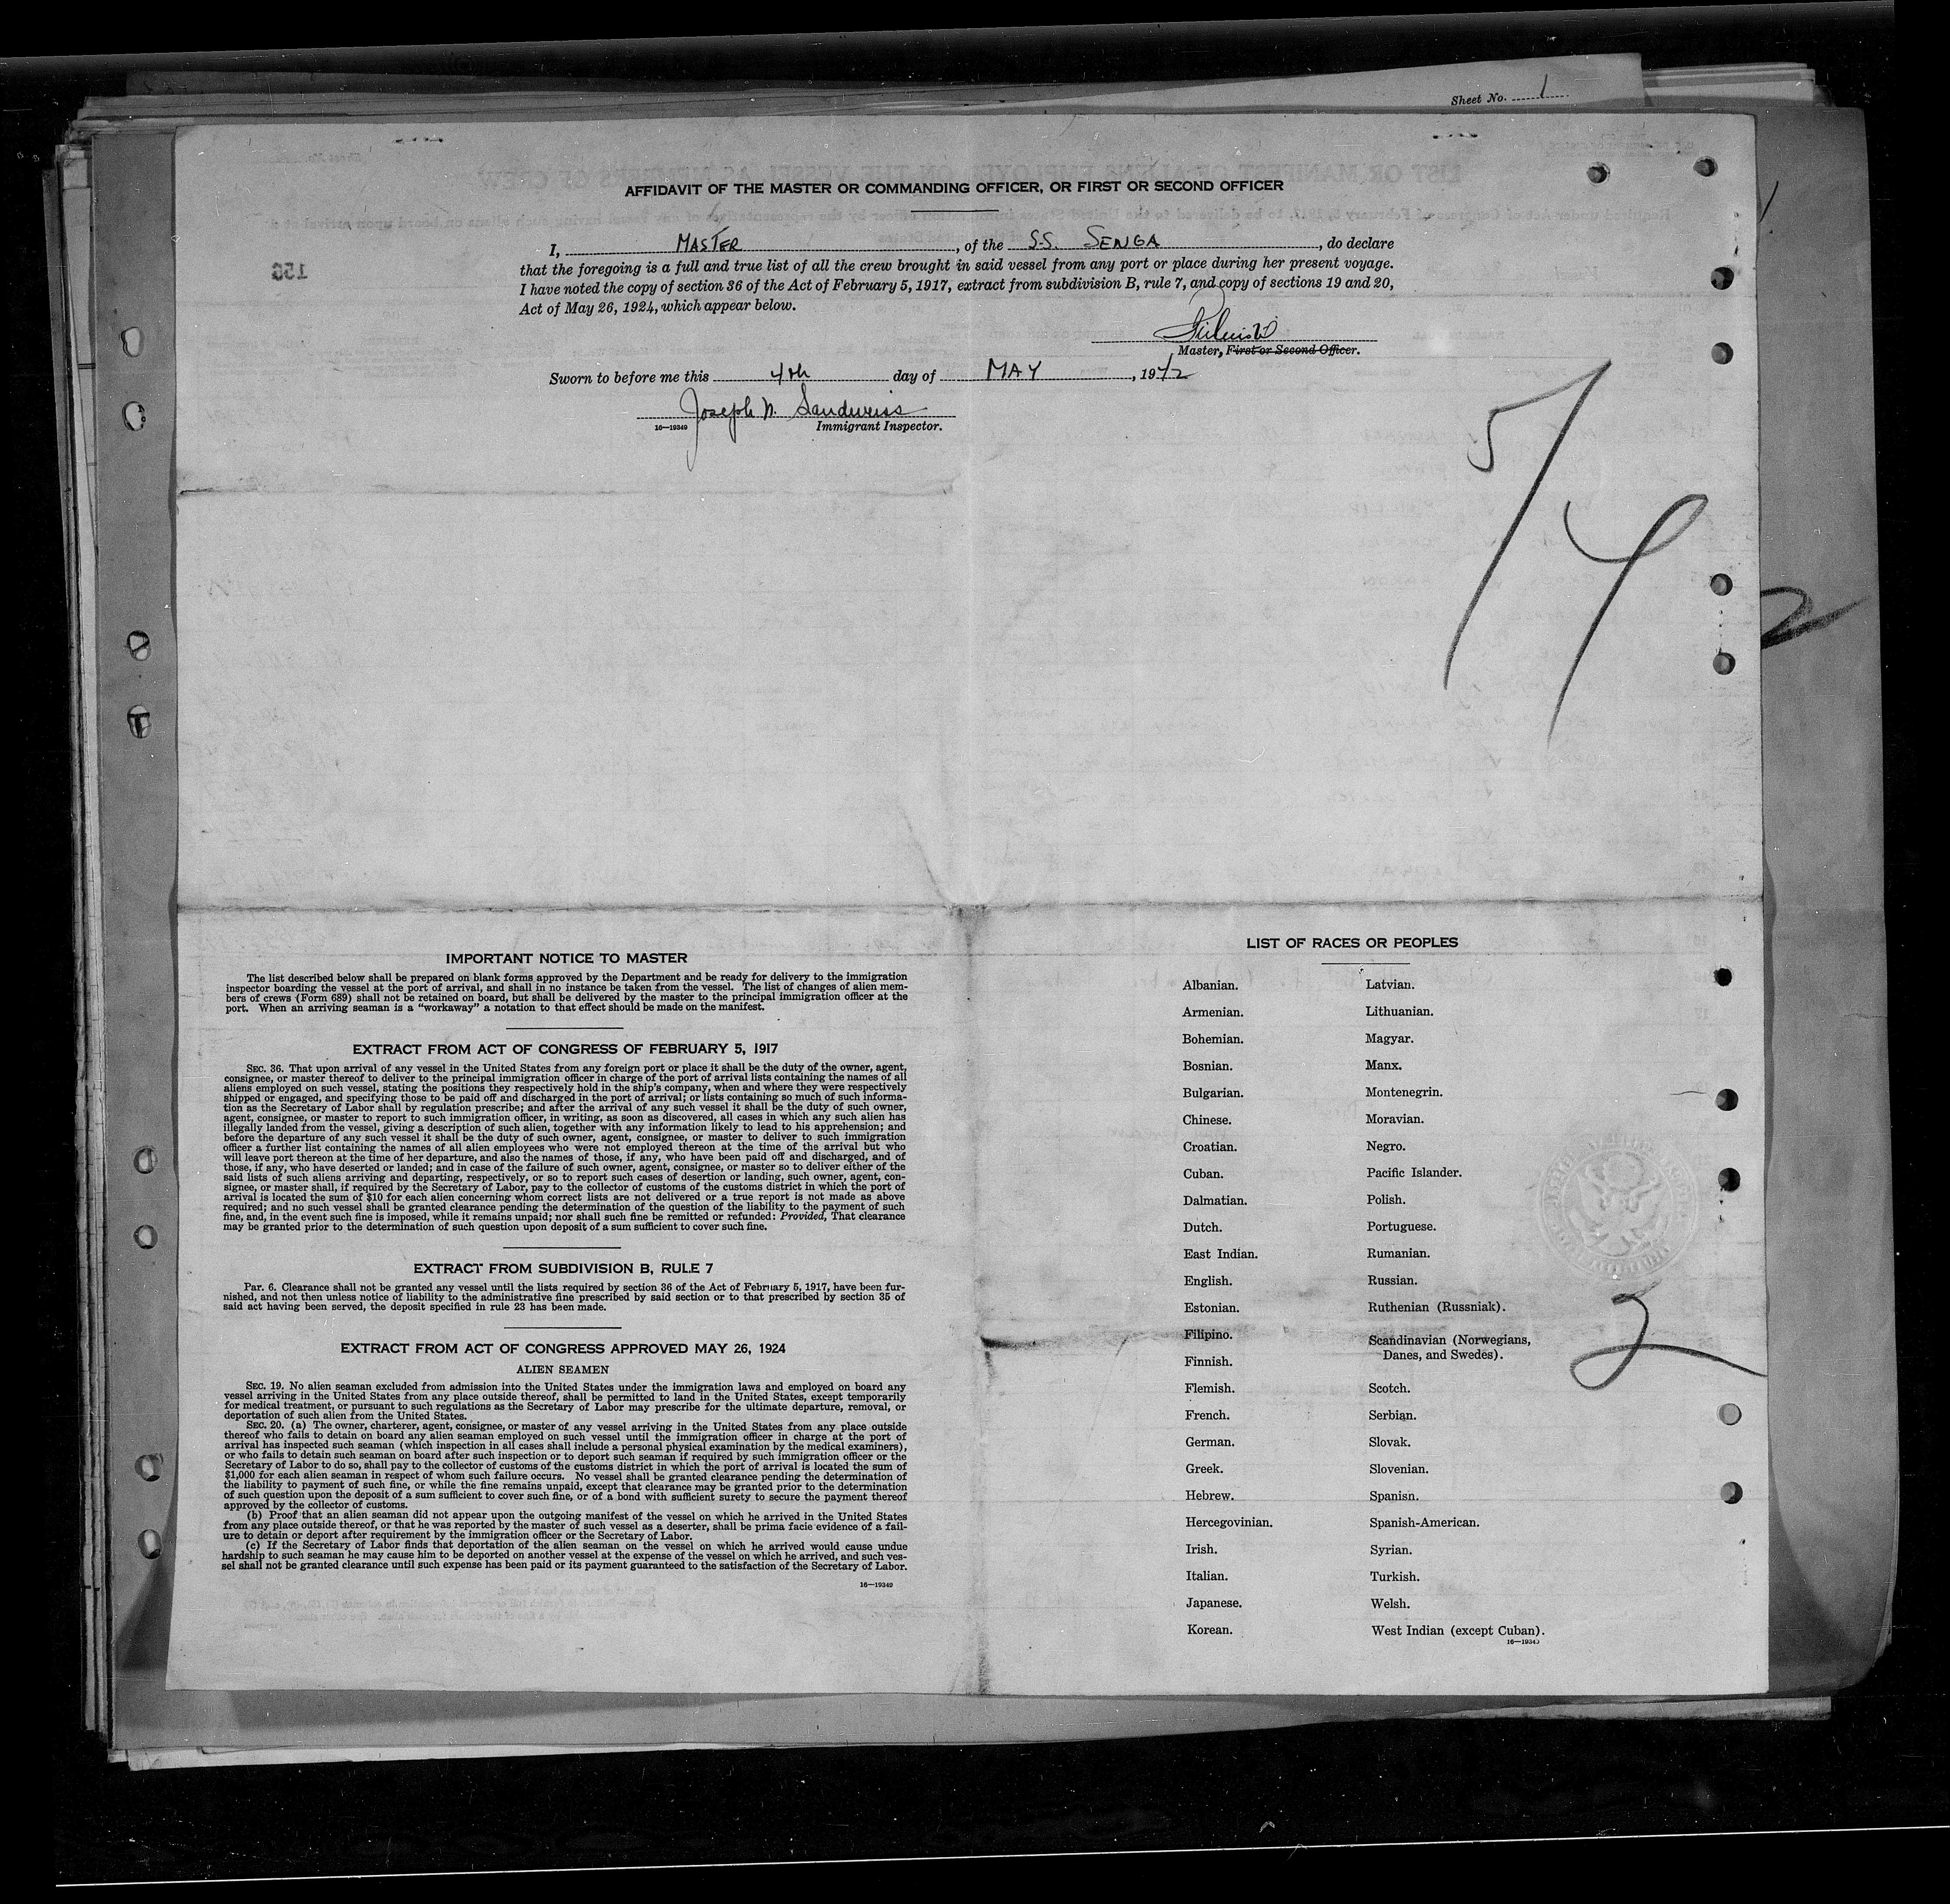 Sheet No. 1
AFFIDAVIT OF THE MASTER OR COMMANDING OFFICER, OR FIRST OR SECOND OFFICER
I, MASTER, of the S.S. SENGA, do declare
that the foregoing is a full and true list of all the crew brought in said vessel from any port or place during her present voyage.
I have noted the copy of section 36 of the Act of February 5, 1917, extract from subdivision B, rule 7, and copy of sections 19 and 20,
Act of May 26, 1924, which appear below.
Master, First or Second Officer.
Sworn to before me this 4th day of MAY, 1942
Joseph N. Sandweiss
16—19349 Immigrant Inspector.
5/4
2
IMPORTANT NOTICE TO MASTER
The list described below shall be prepared on blank forms approved by the Department and be ready for delivery to the immigration
inspector boarding the vessel at the port of arrival, and shall in no instance be taken from the vessel. The list of changes of alien mem-
bers of crews (Form 689) shall not be retained on board, but shall be delivered by the master to the principal immigration officer at the
port. When an arriving seaman is a "workaway" a notation to that effect should be made on the manifest.
EXTRACT FROM ACT OF CONGRESS OF FEBRUARY 5, 1917
SEC. 36. That upon arrival of any vessel in the United States from any foreign port or place it shall be the duty of the owner, agent,
consignee, or master thereof to deliver to the principal immigration officer in charge of the port of arrival lists containing the names of all
aliens employed on such vessel, stating the positions they respectively hold in the ship's company, when and where they were respectively
shipped or engaged, and specifying those to be paid off and discharged in the port of arrival; or lists containing so much of such informa-
tion as the Secretary of Labor shall by regulation prescribe; and after the arrival of any such vessel it shall be the duty of such owner,
agent, consignee, or master to report to such immigration officer, in writing, as soon as discovered, all cases in which any such alien has
illegally landed from the vessel, giving a description of such alien, together with any information likely to lead to his apprehension; and
before the departure of any such vessel it shall be the duty of such owner, agent, consignee, or master to deliver to such immigration
officer a further list containing the names of all alien employees who were not employed thereon at the time of the arrival but who
will leave port thereon at the time of her departure, and also the names of those, if any, who have been paid off and discharged, and of
those, if any, who have deserted or landed; and in case of the failure of such owner, agent, consignee, or master so to deliver either of the
said lists of such aliens arriving and departing, respectively, or so to report such cases of desertion or landing, such owner, agent, con-
signee, or master shall, if required by the Secretary of Labor, pay to the collector of customs of the customs district in which the port of
arrival is located the sum of $10 for each alien concerning whom correct lists are not delivered or a true report is not made as above
required; and no such vessel shall be granted clearance pending the determination of the question of the liability to the payment of such
fine, and, in the event such fine is imposed, while it remains unpaid; nor shall such fine be remitted or refunded: Provided, That clearance
may be granted prior to the determination of such question upon deposit of a sum sufficient to cover such fine.
EXTRACT FROM SUBDIVISION B, RULE 7
Par. 6. Clearance shall not be granted any vessel until the lists required by section 36 of the Act of February 5, 1917, have been fur-
nished, and not then unless notice of liability to the administrative fine prescribed by said section or to that prescribed by section 35 of
said act having been served, the deposit specified in rule 23 has been made.
EXTRACT FROM ACT OF CONGRESS APPROVED MAY 26, 1924
ALIEN SEAMEN
SEC. 19. No alien seaman excluded from admission into the United States under the immigration laws and employed on board any
vessel arriving in the United States from any place outside thereof, shall be permitted to land in the United States, except temporarily
for medical treatment, or pursuant to such regulations as the Secretary of Labor may prescribe for the ultimate departure, removal, or
deportation of such alien from the United States.
SEC. 20. (a) The owner, charterer, agent, consignee, or master of any vessel arriving in the United States from any place outside
thereof who fails to detain on board any alien seaman employed on such vessel until the immigration officer in charge at the port of
arrival has inspected such seaman (which inspection in all cases shall include a personal physical examination by the medical examiners),
or who fails to detain such seaman on board after such inspection or to deport such seaman if required by such immigration officer or the
Secretary of Labor to do so, shall pay to the collector of customs of the customs district in which the port of arrival is located the sum of
$1,000 for each alien seaman in respect of whom such failure occurs. No vessel shall be granted clearance pending the determination of
the liability to payment of such fine, or while the fine remains unpaid, except that clearance may be granted prior to the determination
of such question upon the deposit of a sum sufficient to cover such fine, or of a bond with sufficient surety to secure the payment thereof
approved by the collector of customs.
(b) Proof that an alien seaman did not appear upon the outgoing manifest of the vessel on which he arrived in the United States
from any place outside thereof, or that he was reported by the master of such vessel as a deserter, shall be prima facie evidence of a fail-
ure to detain or deport after requirement by the immigration officer or the Secretary of Labor.
(c) If the Secretary of Labor finds that deportation of the alien seaman on the vessel on which he arrived would cause undue
hardship to such seaman he may cause him to be deported on another vessel at the expense of the vessel on which he arrived, and such ves-
sel shall not be granted clearance until such expense has been paid or its payment guaranteed to the satisfaction of the Secretary of Labor.
16—19349
LIST OF RACES OR PEOPLES
Albanian.
Armenian.
Bohemian.
Bosnian.
Bulgarian.
Chinese.
Croatian.
Cuban.
Dalmatian.
Dutch.
East Indian.
English.
Estonian.
Filipino.
Finnish.
Flemish.
French.
German.
Greek.
Hebrew.
Hercegovinian.
Irish.
Italian.
Japanese.
Korean.
Latvian.
Lithuanian.
Magyar.
Manx.
Montenegrin.
Moravian.
Negro.
Pacific Islander.
Polish.
Portuguese.
Rumanian.
Russian.
Ruthenian (Russniak).
Scandinavian (Norwegians,
Danes, and Swedes).
Scotch.
Serbian.
Slovak.
Slovenian.
Spanish.
Spanish-American.
Syrian.
Turkish.
Welsh.
West Indian (except Cuban).
16—19349
2